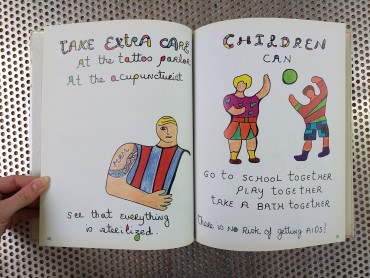 TAKE EXTRA CARE
at the tattoo parlor
At the acupuncturist
see that everything
is sterilized.
CHILDREN
CAN
GO TO SCHOOL TOGETHER
PLAY TOGETHER
TAKE A BATH TOGETHER
there is NO Risk of getting AIDS!